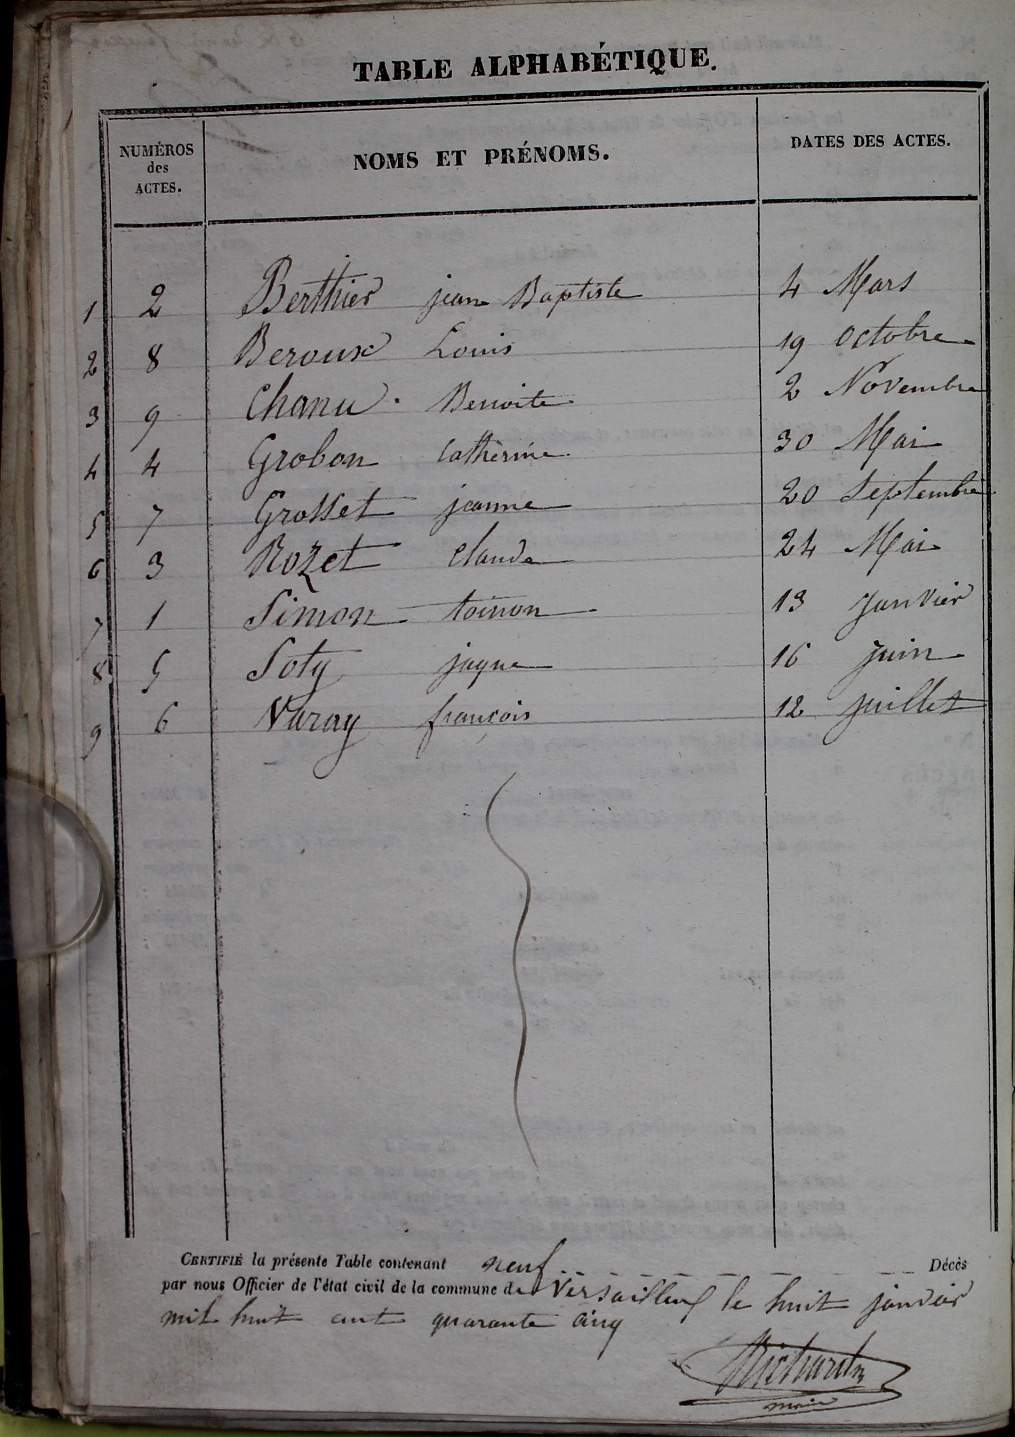 TABLE ALPHABÉTIQUE.
NUMÉROS des ACTES. NOMS ET PRÉNOMS. DATES DES ACTES.
1 2 Berthier jean Baptiste 4 Mars
2 8 Beroux Louis 19 octobre
3 9 Chanu Benoite 2 Novembre
4 4 Grobon Catherine 30 Mai
5 7 Grosset jeanne 20 Septembre
6 3 Rozet Claude 24 Mai
7 1 Simon toinon 13 janvier
8 5 Soty jaque 16 juin
9 6 Varay françois 12 juillet
CERTIFIÉ la présente Table contenant neuf Décès
par nous Officier de l'état civil de la commune de Versailleux le huit janvier
mil huit cent quarante cinq
maire